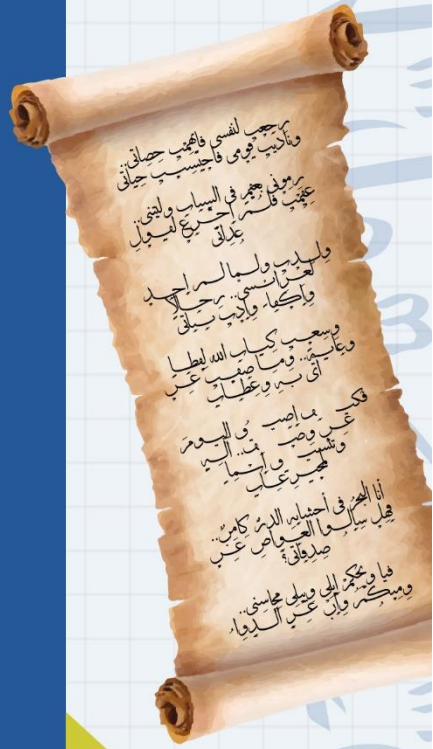 رجعت لنفسي فاتهمت حصاتي..
وناديت قومي فاحتسبت حياتي
رموني بعقم في الشباب وليتني..
عقمت فلم أجزع لقول
عداتي
ولدت ولما لم أجد
لعرائسي.. رجالا
وأكفاء وأدت بناتي
وسعت كتاب الله لفظا
وغاية.. وما ضقت عن
آي به وعظات
فكيف أضيق اليوم
عن وصف آلة
وتنسيق أسماء
لمخترعات
أنا البحر في أحشائه الدر كامن..
فهل سألوا الغواص عن
صدفاتي؟
فيا ويحكم أبلى وتبلى محاسني..
ومنكم وإن عز الدواء